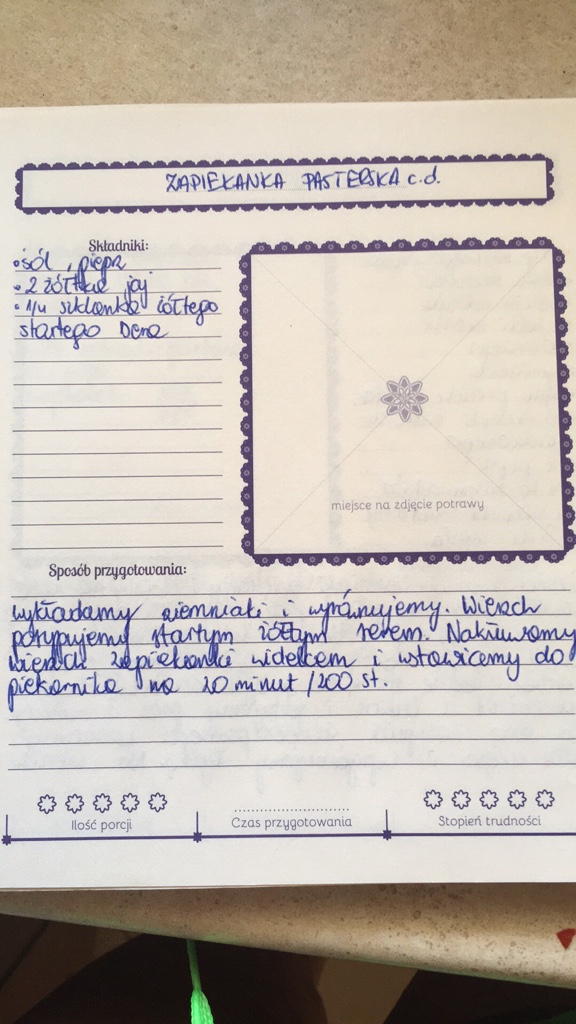 ZAPIEKANKA PASTERSKA c.d.
Składniki:
• sól, pieprz
• 2 żółtka jaj
• 1/4 szklanki żółtego
startego sera
miejsce na zdjęcie potrawy
Sposób przygotowania:
wykładamy ziemniaki i wyrównujemy. Wierzch
posypujemy startym żółtym serem. Nakłuwamy
wierzch zapiekanki widelcem i wstawiamy do
piekarnika na 20 minut /200 st.
Ilość porcji
Czas przygotowania
Stopień trudności